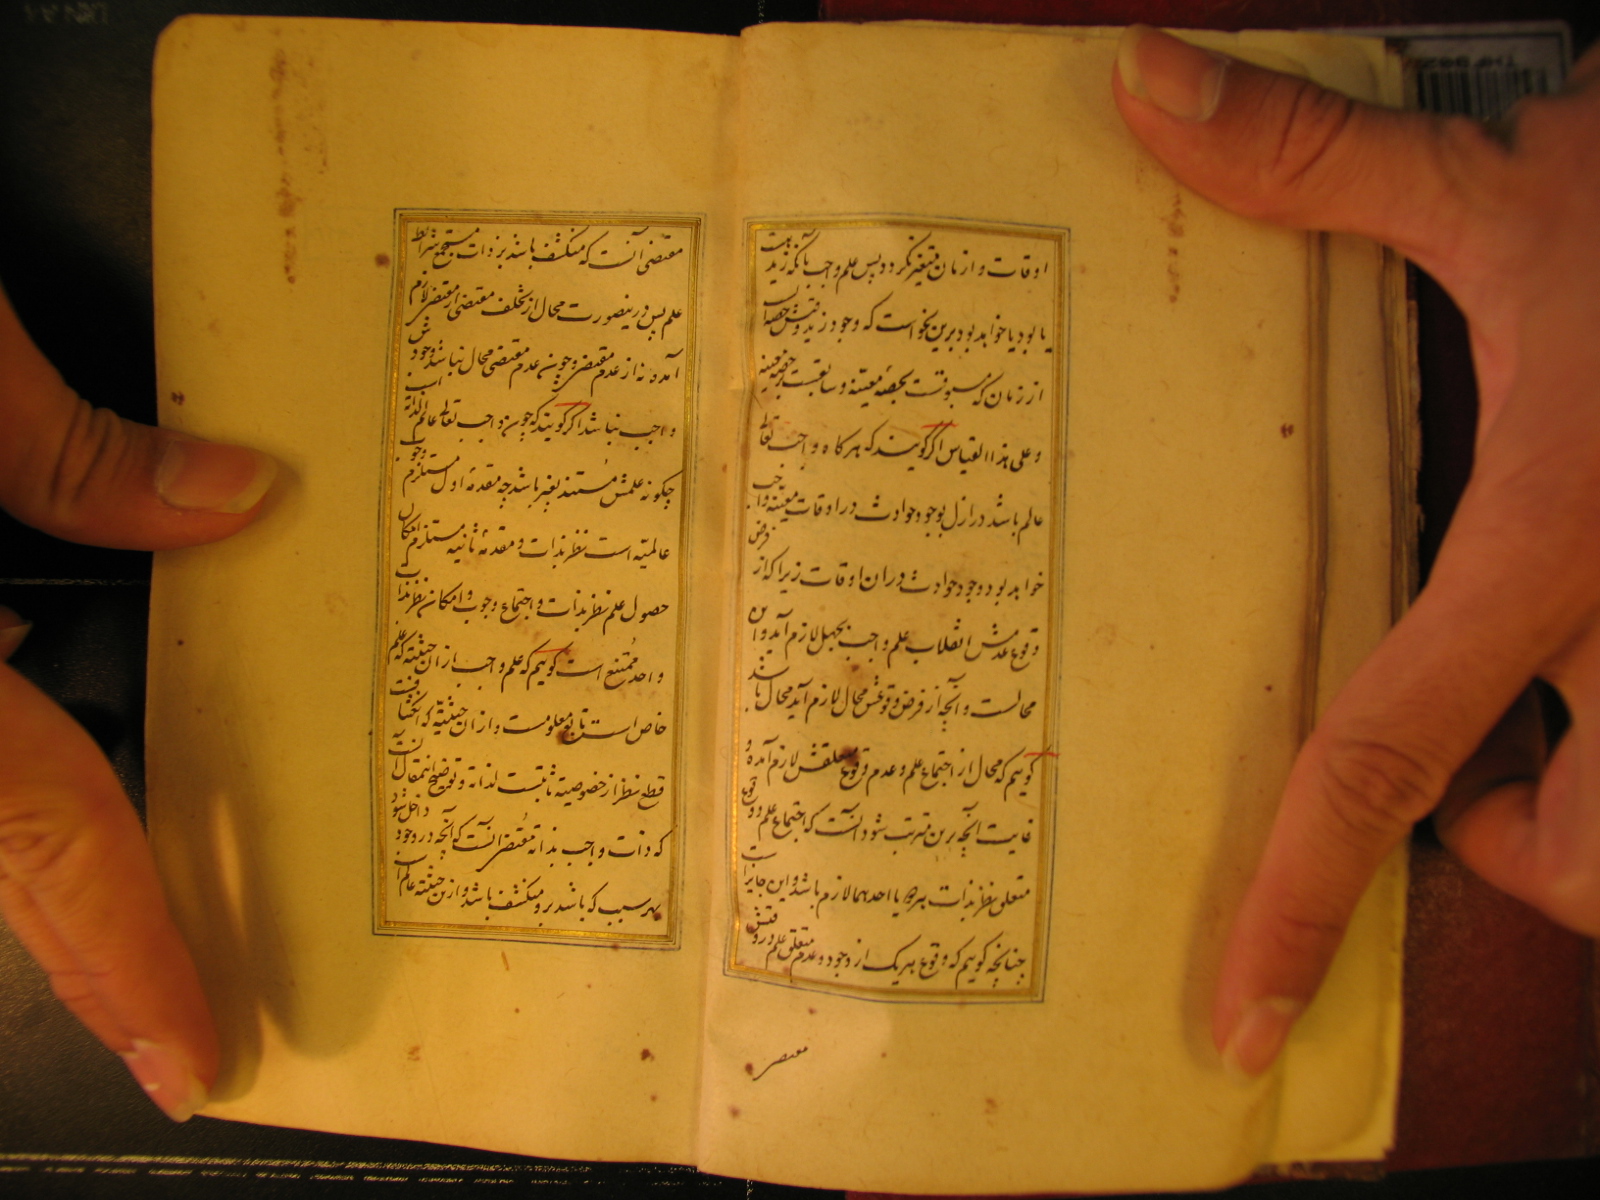 اوقات و ازمان متغیر نکردد پس علم واجب بآنکه زید هست
یا بود یا خواهد بود برین نحو است که وجود زید و قتش حصه
از زمان که مسبوقست بحصه معینه و سابقست بر حصه معینه
و علی هذا القیاس اگر گویند که هرکاه واجب تعالی
عالم باشد در ازل بوجود حوادث در اوقات معینه واجب
خواهد بود وجود حوادث در ان اوقات زیرا که از فرض
وقوع عدمش انقلاب علم واجب بجهل لازم آید و این
محالست و آنچه از فرض وقوعش محال لازم آید محال باشد
گوییم که محال از اجتماع علم و عدم وقوع متعلقش لازم آمده و
غایت آنچه برین مترتب شود آنست که اجتماع علم و وقوع
متعلق نظر بذات هر دو یا احدهما لازم باشد و این جایز است
چنانچه گوییم که وقوع هر یک از وجود و عدم متعلق علم در وقتش
مقتضی
مقتضی آنست که منکشف باشد بر ذات مستجمع شرائط
علم پس درینصورت محال از تخلف مقتضی از مقتضی لازم
آمده نه از عدم مقتضی و چون عدم مقتضی محال نباشد وجودش
واجب نباشد اگر گویند که چون واجب تعالی عالم لذاته است
چگونه علمش مستند بغیر باشد چه مقدمهٔ اول مستلزم وجوب
عالمیته است نظر بذات و مقدمهٔ ثانیه مستلزم امکان
حصول علم نظر بذات و اجتماع وجوب و امکان نظر بذات
واحد ممتنع است گوییم که علم واجب از ان حیثیته که علم
خاص است تابع معلومست و از ان حیثیته که انکشافست
قطع نظر از خصوصیة ثابتست لذاته و توضیح اینمقال آنست
که ذات واجب بذاته مقتضی آنست که آنچه در وجود داخل شود
بهر سبب که باشد برو منکشف باشد و ازین حیثیته عالم